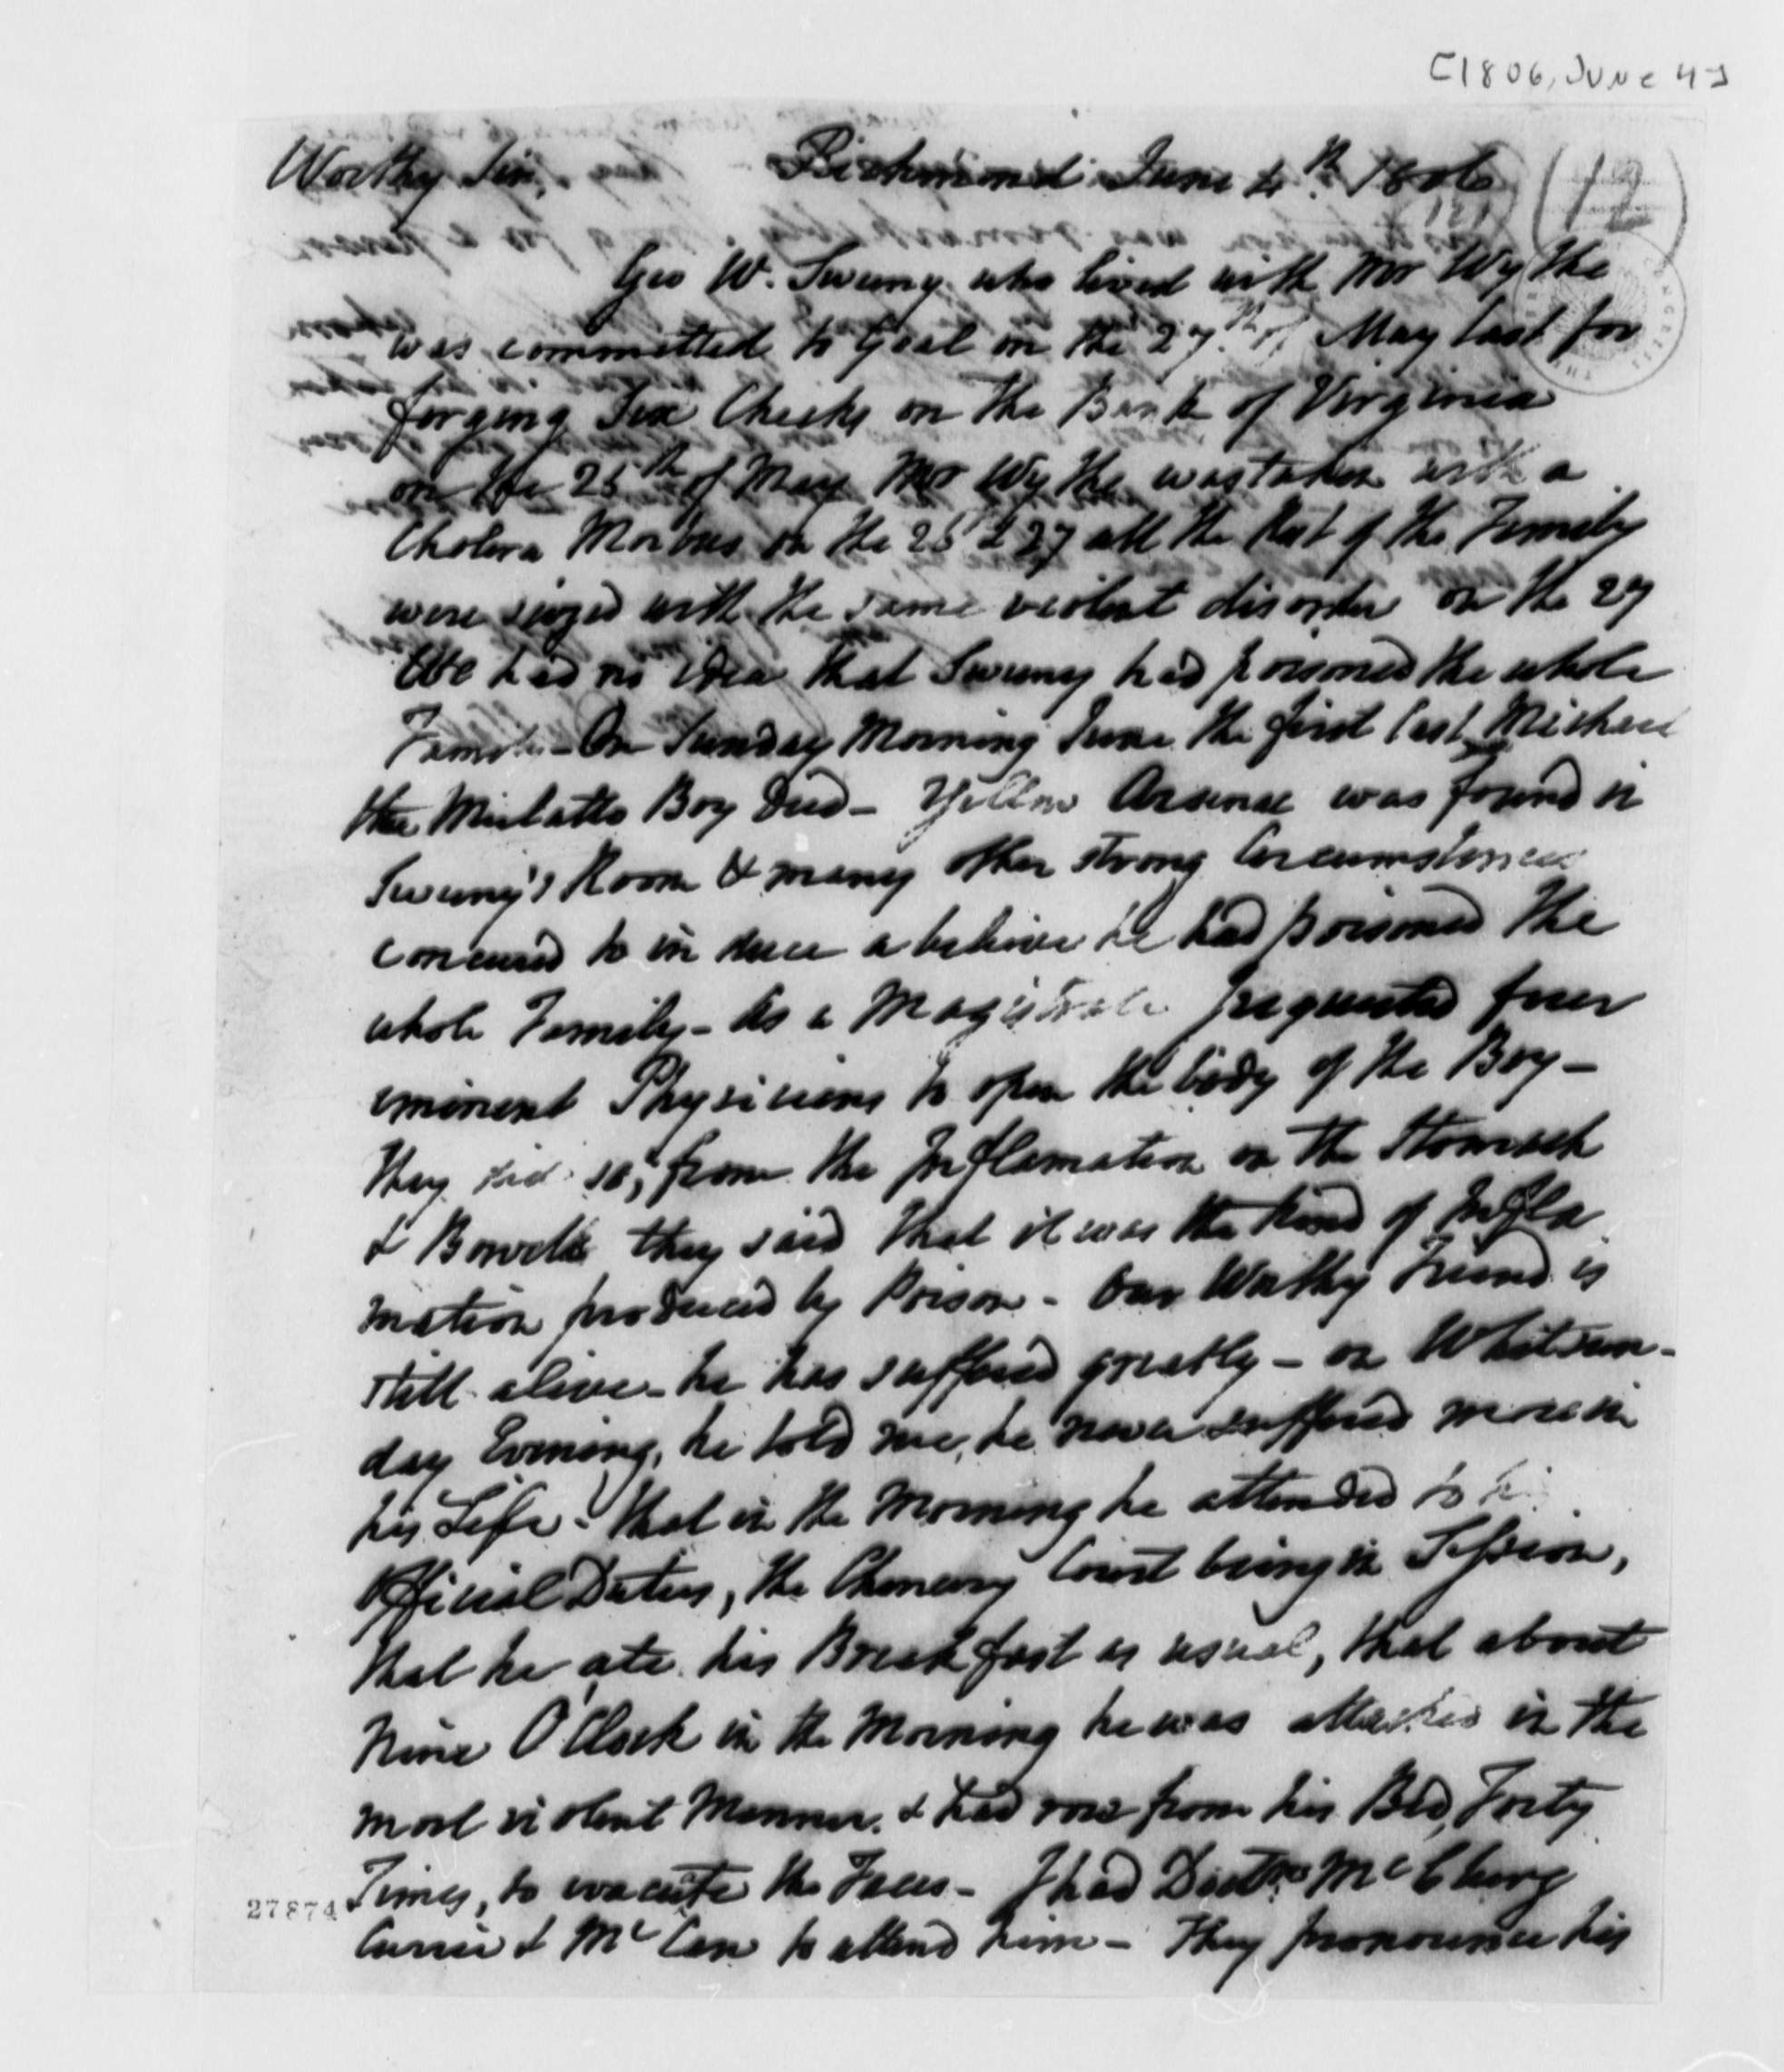 [1806, June 4]
Worthy Sir, Richmond June 4th. 1806
(12)
Geo W. Sweeny who lived with Mr Wythe
was committed to Goal on the 27th. of May last for
forging Six Checks on the Bank of Virginia
on the 25th of May Mr Wythe was taken with a
Cholera Morbus on the 26 & 27 all the Rest of the Family
were siezed with the same violent disorder on the 27
We had no idea that Sweeny had poisoned the whole
Family - On Sunday Morning June the first last Michael
the Mulatto Boy died - Yellow Arsenic was found in
Sweeny's Room & many other strong Circumstances
concured to in duce a believe he had poisoned the
whole Family - As a Magistrate I requested four
eminent Physicians to open the body of the Boy -
They did so; from the Inflamation on the Stomach
& Bowels they said that it was the kind of Infla
mation produced by Poison - Our Worthy Friend is
still alive - he has suffered greatly - on Whitsun-
day Evening, he told me, he never suffered more in
his Life - that in the Morning he attended to his
Official Duties, the Chancery Court being in Session,
that he ate his Breakfast as usual, that about
Nine O'Clock in the Morning he was attacked in the
most violent Manner. & had rose from his Bed, Forty
Times, to evacute the Faces - I had Doctrs McClurg
27874
Currie & McCaw to attend him - They pronounce his